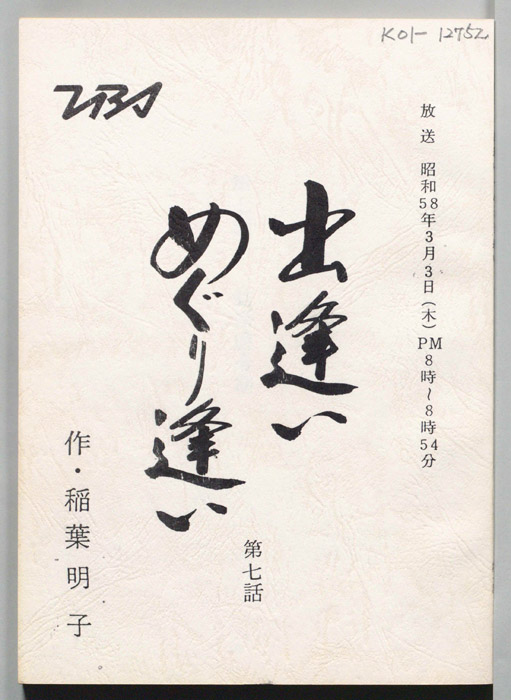 K01-12752
TBS
放送 昭和58年3月3日(木)PM8時~8時54分
出逢い
めぐり逢い
第七話
作・稲葉明子